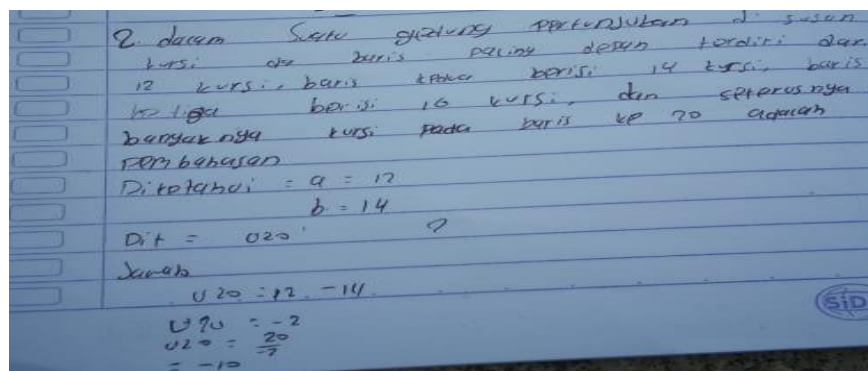 2. dalam Suatu gedung pertunjukan di susun
kursi baris paling depan terdiri dari
12 kursi, baris kedua berisi 14 kursi, baris
ketiga berisi 16 kursi, dan seterusnya
banyaknya kursi pada baris ke 20 adalah
pembahasan
Diketahui = a = 12
b = 14
Dit = U20 ?
Jawab
U20 = 12 - 14
U20 = -2
U20 = 20/-2
= -10
SiD